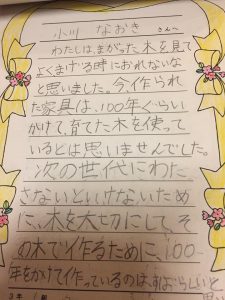 小川 なおき さんへ
わたしは、まがった木を見て
よくまげる時におれないな
と思いました。今、作られ
た家具は、100年ぐらい
かけて、育てた木を使って
いるとは思いませんでした。
次の世代にわた
さないといけないため
に、木を大切にして、そ
の木で作るために、100
年をかけて作っているのは、すばらしいと